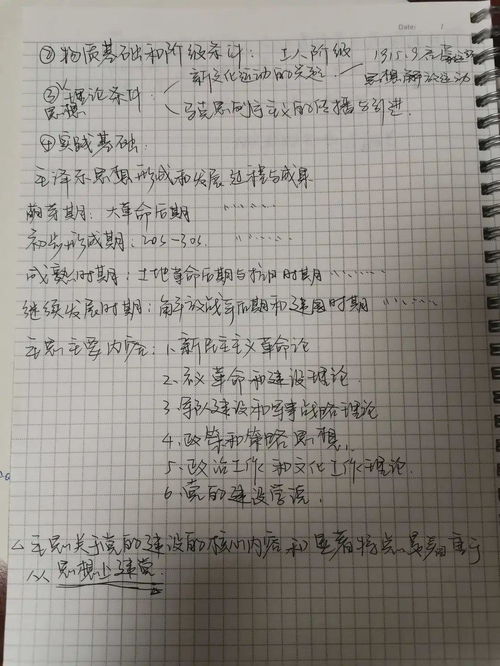 Date: /
②物质基础和阶级条件：工人阶级
③理论条件：新文化运动的兴起 1915.9 启蒙运动
思想 思想解放运动
马克思列宁主义的传播与引进.
④实践基础：
毛泽东思想形成和发展过程与成果
萌芽期：大革命后期
初步形成期：20s-30s.
成熟时期：土地革命后期与抗日时期
继续发展时期：解放战争后期和建国时期
毛思主要内容：1.新民主主义革命论
2.义革命和建设理论
3.军队建设和军事战略理论
4.政策和策略思想.
5.政治工作和文化工作理论.
6.党的建设学说.
△毛思关于党的建设的核心内容和显著特点是着重于
从思想上建党.